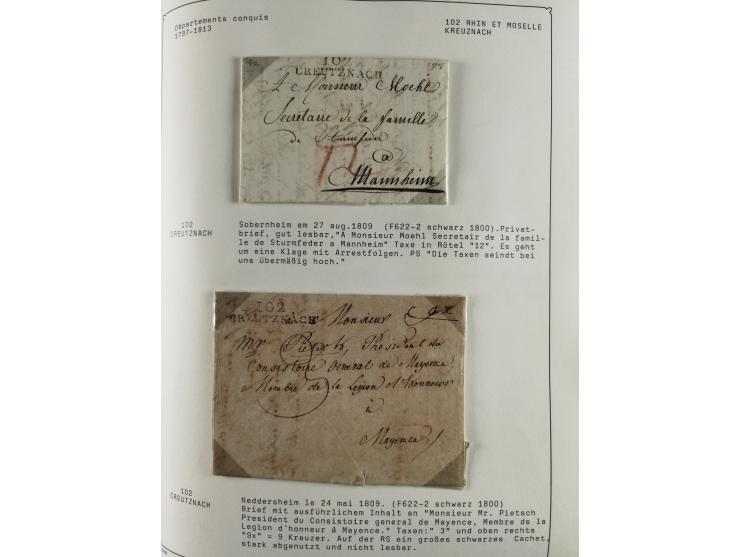 Départements conquis
1797-1813
102 RHIN ET MOSELLE
KREUZNACH
102
CREUTZNACH
A Monsieur Moehl
Secretaire de la famille
de Sturmfeder
a
Mannheim
12
102
CREUTZNACH
Sobernheim am 27 aug.1809 (F622-2 schwarz 1800).Privat-
brief, gut lesbar,"A Monsieur Moehl Secretair de la famil-
le de Sturmfeder a Mannheim" Taxe in Rötel "12". Es geht
um eine Klage mit Arrestfolgen. PS "Die Taxen seindt bei
uns übermäßig hoch."
102
CREUTZNACH
a Monsieur
9x
Mr Pietsch, President du
Consistoire general de Mayence
Membre de la Legion d'honneur
à
Mayence
102
CREUTZNACH
Neddersheim le 24 mai 1809. (F622-2 schwarz 1800)
Brief mit ausführlichem Inhalt an "Monsieur Mr. Pietsch
President du Consistoire general de Mayence, Membre de la
Legion d'honneur â Mayence." Taxen:" 3" und oben rechts
"9x" = 9 Kreuzer. Auf der RS ein großes schwarzes Cachet,
stark abgenutzt und nicht lesbar.